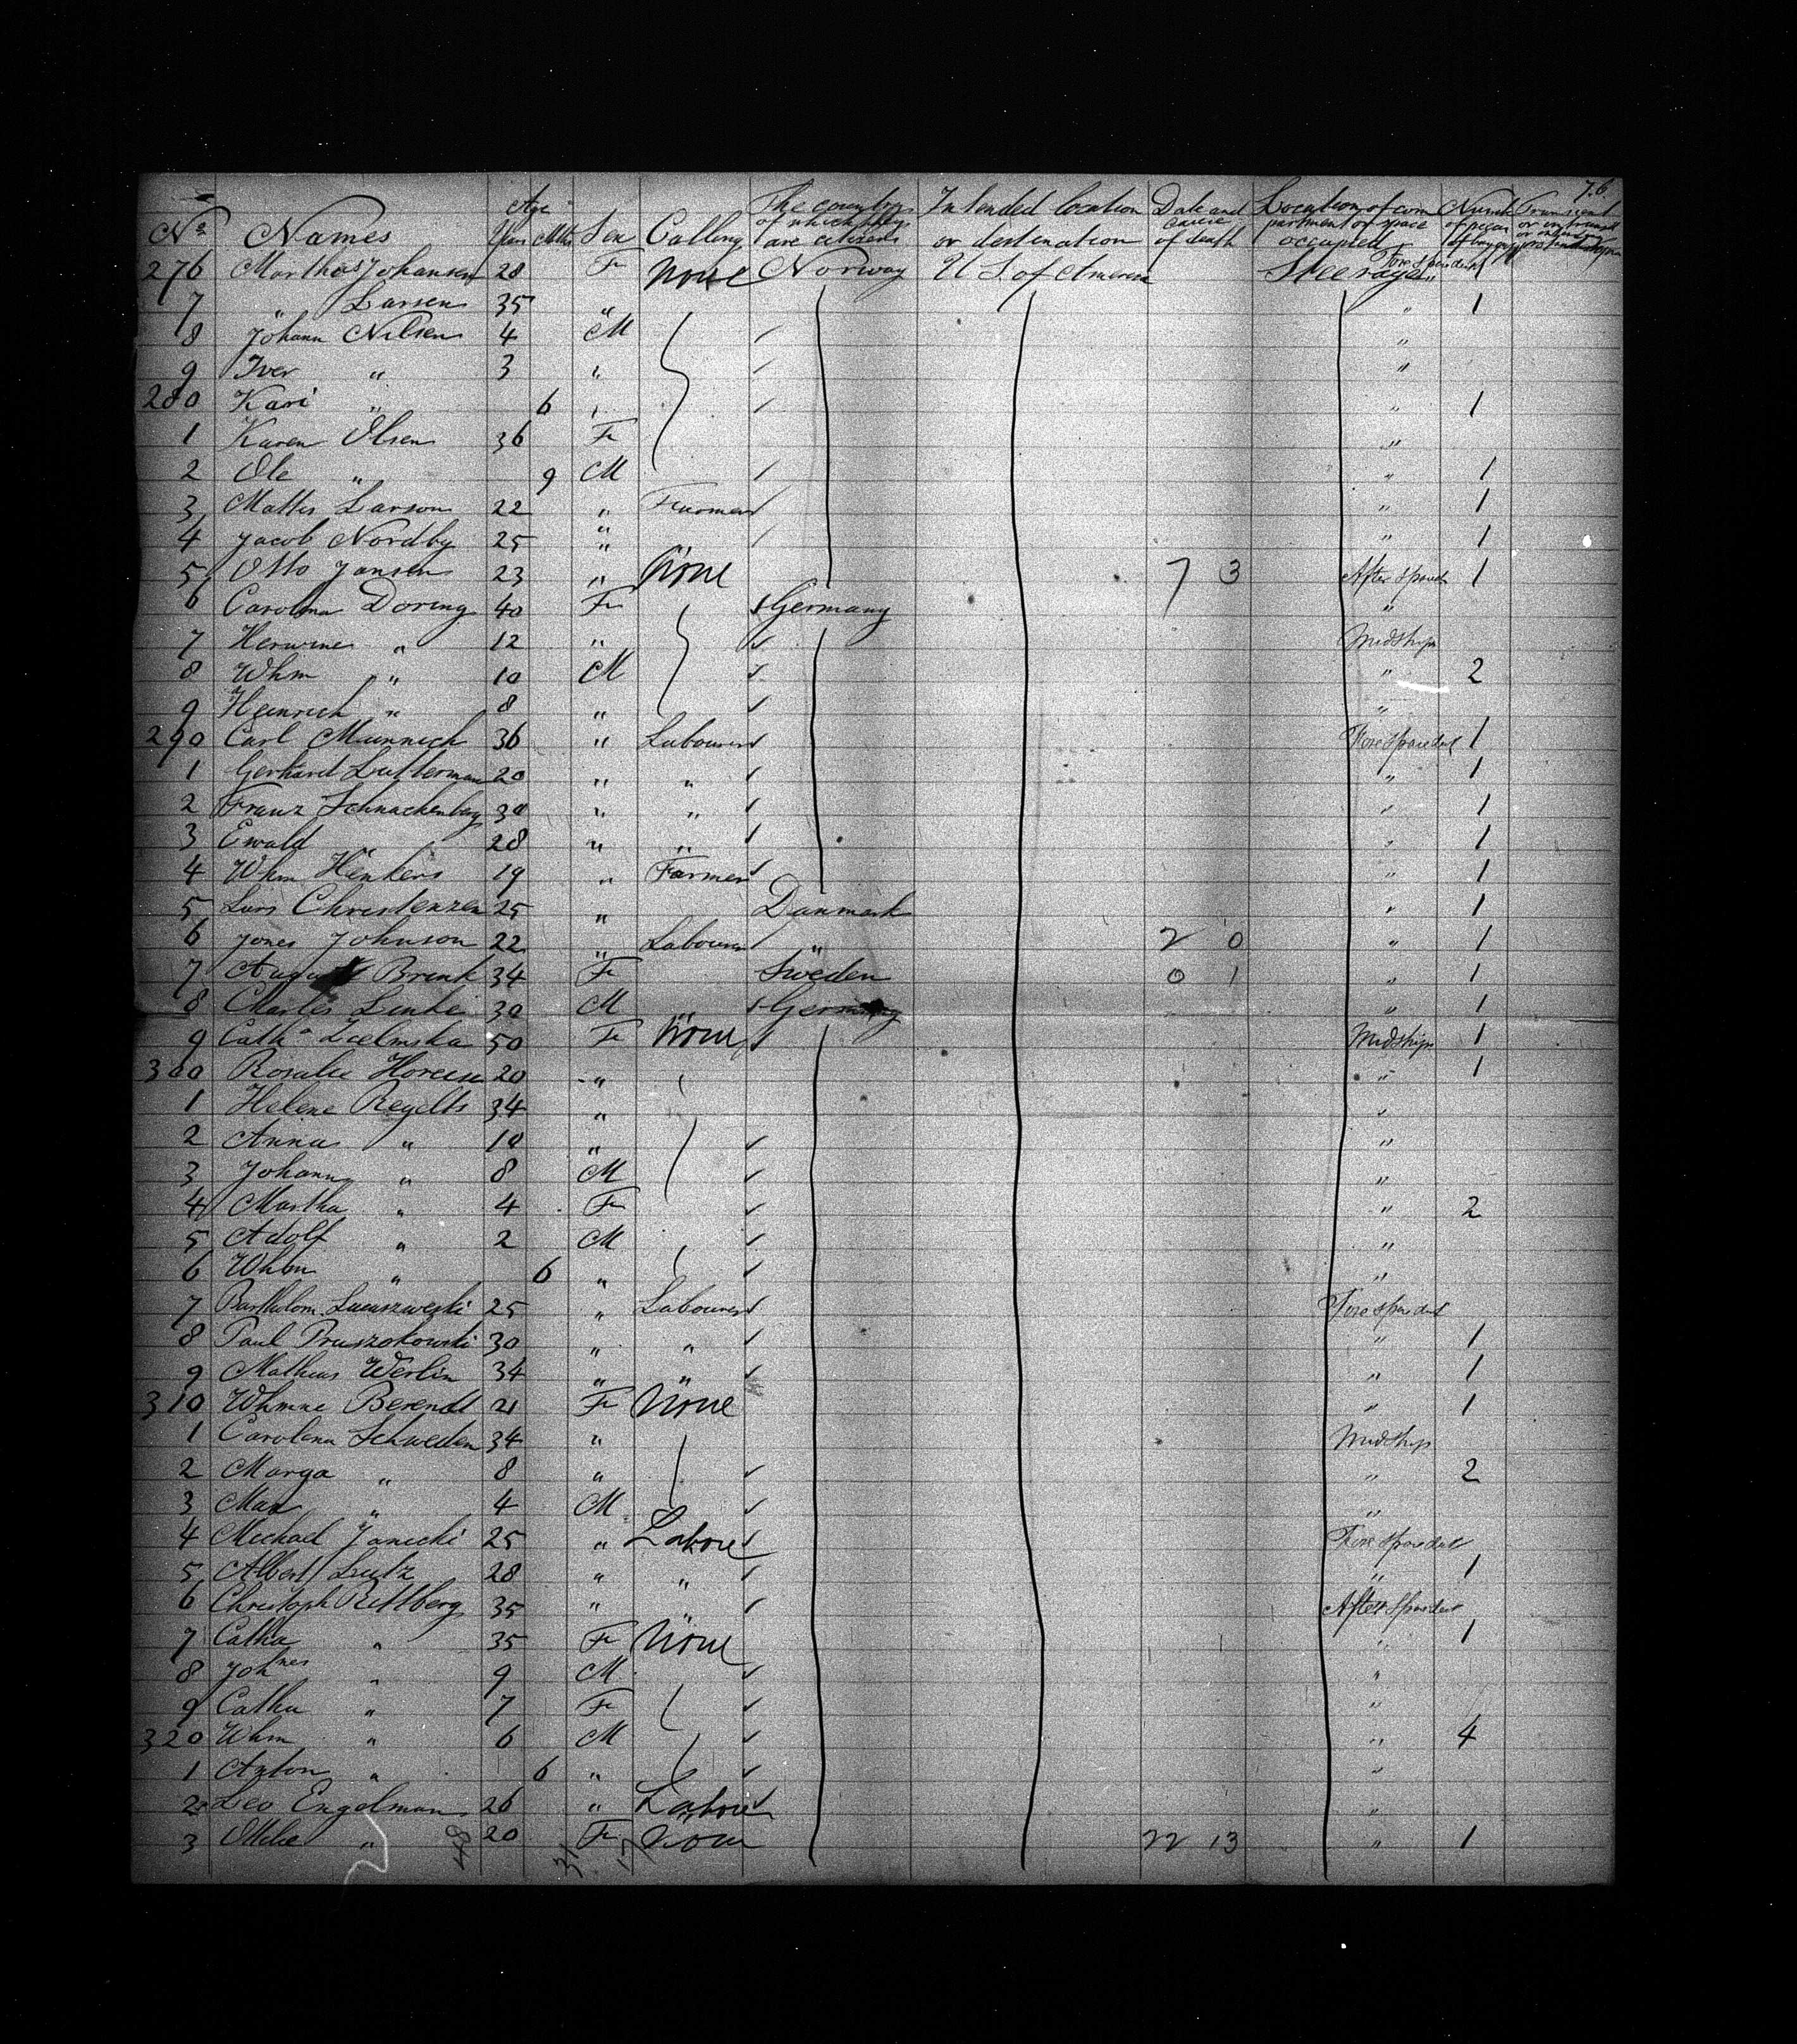 76
No Names Age Years Mths Sex Calling The country of which they are citizens Intended location or destination Date and cause of death Location of compartment or space occupied Number of pieces of baggage
276 Martha Johansen 28 F None Norway U S. of America Steerage Fore spardeck
7 " Larsen 35 " " 1
8 Johann Nilsen 4 M "
9 Iver " 3 " "
280 Kari " 6 " " 1
1 Karen Olsen 36 F "
2 Ole " 9 M " 1
3 Mattis Larson 22 " Farmer " 1
4 Jacob Nordby 25 " " " 1
5 Otto Jansen 23 " None 7 3 After spardk 1
6 Carolina Doring 40 F Germany "
7 Hermine " 12 " Midship
8 Whm " 10 M " 2
9 Heinrich " 8 " "
290 Carl Munnich 36 " Labourer Fore spardeck 1
1 Gerhard Lutterman 20 " " " 1
2 Franz Schnackenberg 30 " " " 1
3 Ewald " 28 " " " 1
4 Whm Henkers 19 " Farmer " 1
5 Lars Christenzen 25 " Danmark " 1
6 Jones Johnson 22 " Labourer " 2 0 " 1
7 August Brink 34 F Sweden 0 1 " 1
8 Charles Linke 30 M " Germany " 1
9 Catha Zielinska 50 F None Midship 1
300 Rosalie 20 " " 1
1 Helene Regelts 34 " "
2 Anna " 10 " "
3 Johann " 8 M "
4 Martha " 4 F " 2
5 Adolf " 2 M "
6 Whm " 6 " "
7 Bartholom 25 " Labourer Fore spardeck
8 Paul Pruszokowski 30 " " " 1
9 Mathias Werlin 34 " " " 1
310 Whmne Berendt 21 F None " 1
1 Carolina Schweden 34 " Midship
2 Marga " 8 " " 2
3 Max " 4 M "
4 Michael Janecki 25 " Labourer Fore spardeck
5 Albert Lutz 28 " " " 1
6 Christoph Rettberg 35 " " After spardeck
7 Catha " 35 F None " 1
8 Johnes " 9 M "
9 Catha " 7 F "
320 Whm " 6 M " 4
1 Anton " 6 " "
2 Leo Engelman 26 " Labourer "
3 Ottilie " 20 F None 22 13 " 1
48 31 17